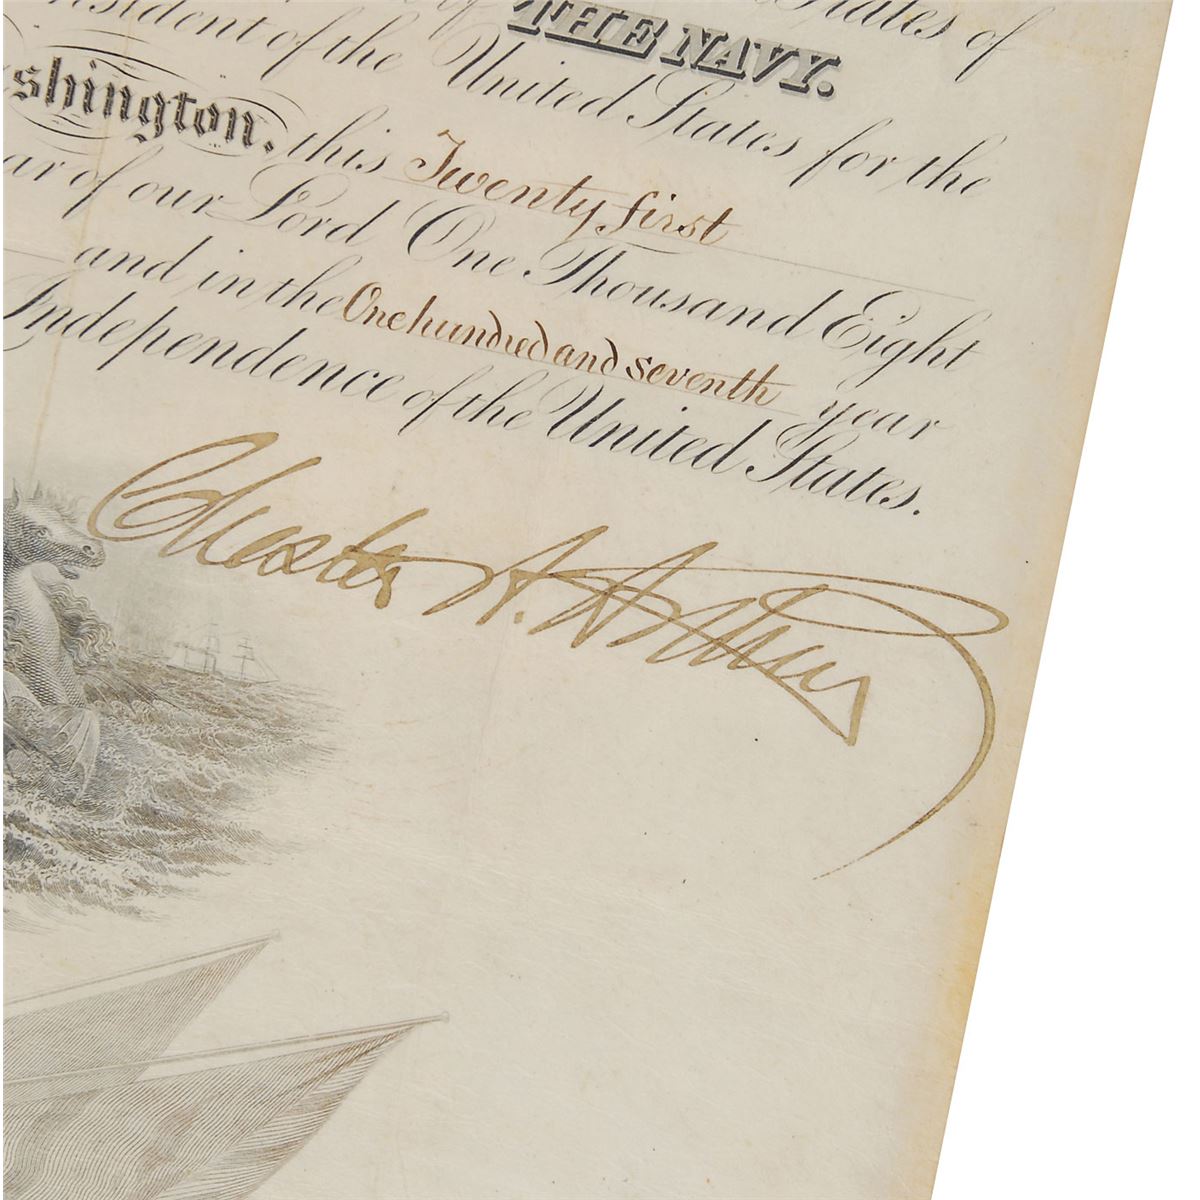 States of
THE NAVY.
sident of the United States for the
shington. this Twenty first
ar of our Lord One Thousand Eight
and in the One hundred and seventh year
Independence of the United States.
Chester A. Arthur